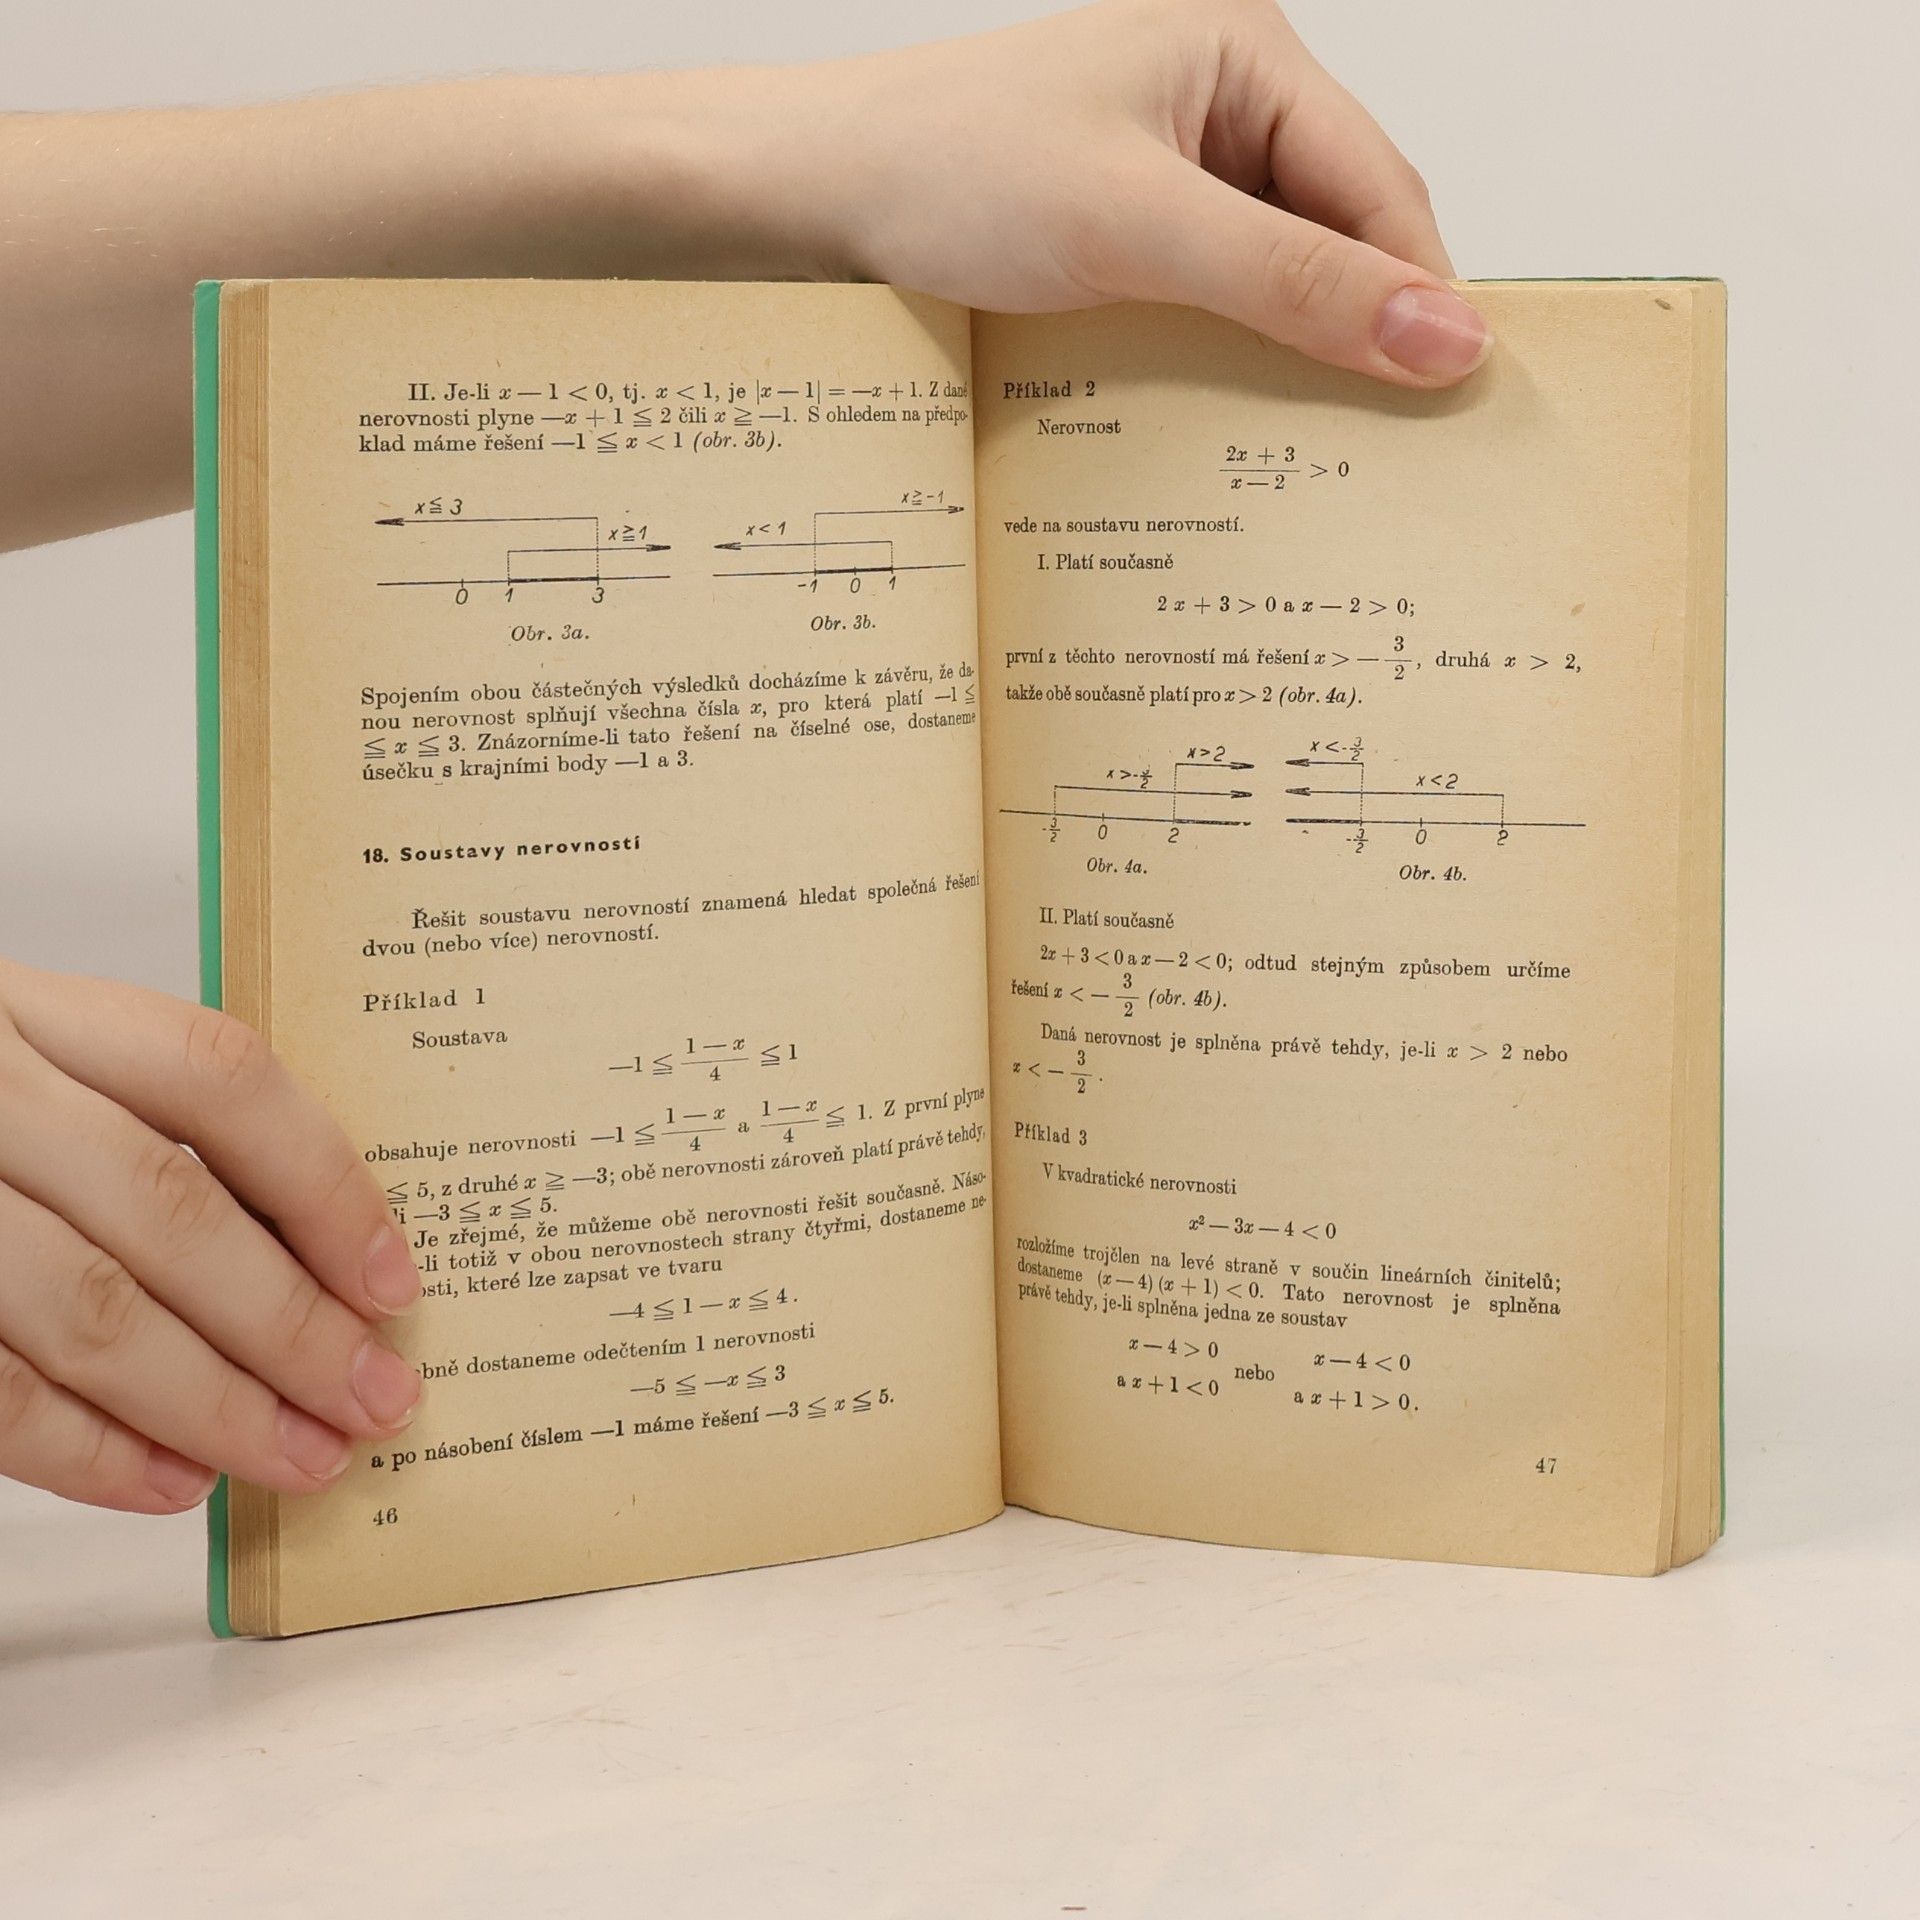 II. Je-li x — 1 < 0, tj. x < 1, je |x — 1| = —x + 1. Z dané
nerovnosti plyne —x + 1 ≦ 2 čili x ≧ —1. S ohledem na předpo-
klad máme řešení —1 ≦ x < 1 (obr. 3b).
x ≦ 3
x ≧ 1
0 1 3
Obr. 3a.
x < 1
x ≧ -1
-1 0 1
Obr. 3b.
Spojením obou částečných výsledků docházíme k závěru, že da-
nou nerovnost splňují všechna čísla x, pro která platí —1 ≦
≦ x ≦ 3. Znázorníme-li tato řešení na číselné ose, dostaneme
úsečku s krajními body —1 a 3.
18. Soustavy nerovností
Řešit soustavu nerovností znamená hledat společná řešení
dvou (nebo více) nerovností.
Příklad 1
Soustava
—1 ≦ (1 — x)/4 ≦ 1
obsahuje nerovnosti —1 ≦ (1 — x)/4 a (1 — x)/4 ≦ 1. Z první plyne
≦ 5, z druhé x ≧ —3; obě nerovnosti zároveň platí právě tehdy,
li —3 ≦ x ≦ 5.
Je zřejmé, že můžeme obě nerovnosti řešit současně. Náso-
-li totiž v obou nerovnostech strany čtyřmi, dostaneme ne-
osti, které lze zapsat ve tvaru
—4 ≦ 1 — x ≦ 4.
obně dostaneme odečtením 1 nerovnosti
—5 ≦ —x ≦ 3
a po násobení číslem —1 máme řešení —3 ≦ x ≦ 5.
46
Příklad 2
Nerovnost
(2x + 3)/(x — 2) > 0
vede na soustavu nerovností.
I. Platí současně
2 x + 3 > 0 a x — 2 > 0;
první z těchto nerovností má řešení x > — 3/2, druhá x > 2,
takže obě současně platí pro x > 2 (obr. 4a).
x > -3/2
x > 2
-3/2 0 2
Obr. 4a.
x < -3/2
x < 2
-3/2 0 2
Obr. 4b.
II. Platí současně
2x + 3 < 0 a x — 2 < 0; odtud stejným způsobem určíme
řešení x < — 3/2 (obr. 4b).
Daná nerovnost je splněna právě tehdy, je-li x > 2 nebo
x < — 3/2.
Příklad 3
V kvadratické nerovnosti
x² — 3x — 4 < 0
rozložíme trojčlen na levé straně v součin lineárních činitelů;
dostaneme (x — 4) (x + 1) < 0. Tato nerovnost je splněna
právě tehdy, je-li splněna jedna ze soustav
x — 4 > 0
a x + 1 < 0
nebo
x — 4 < 0
a x + 1 > 0.
47